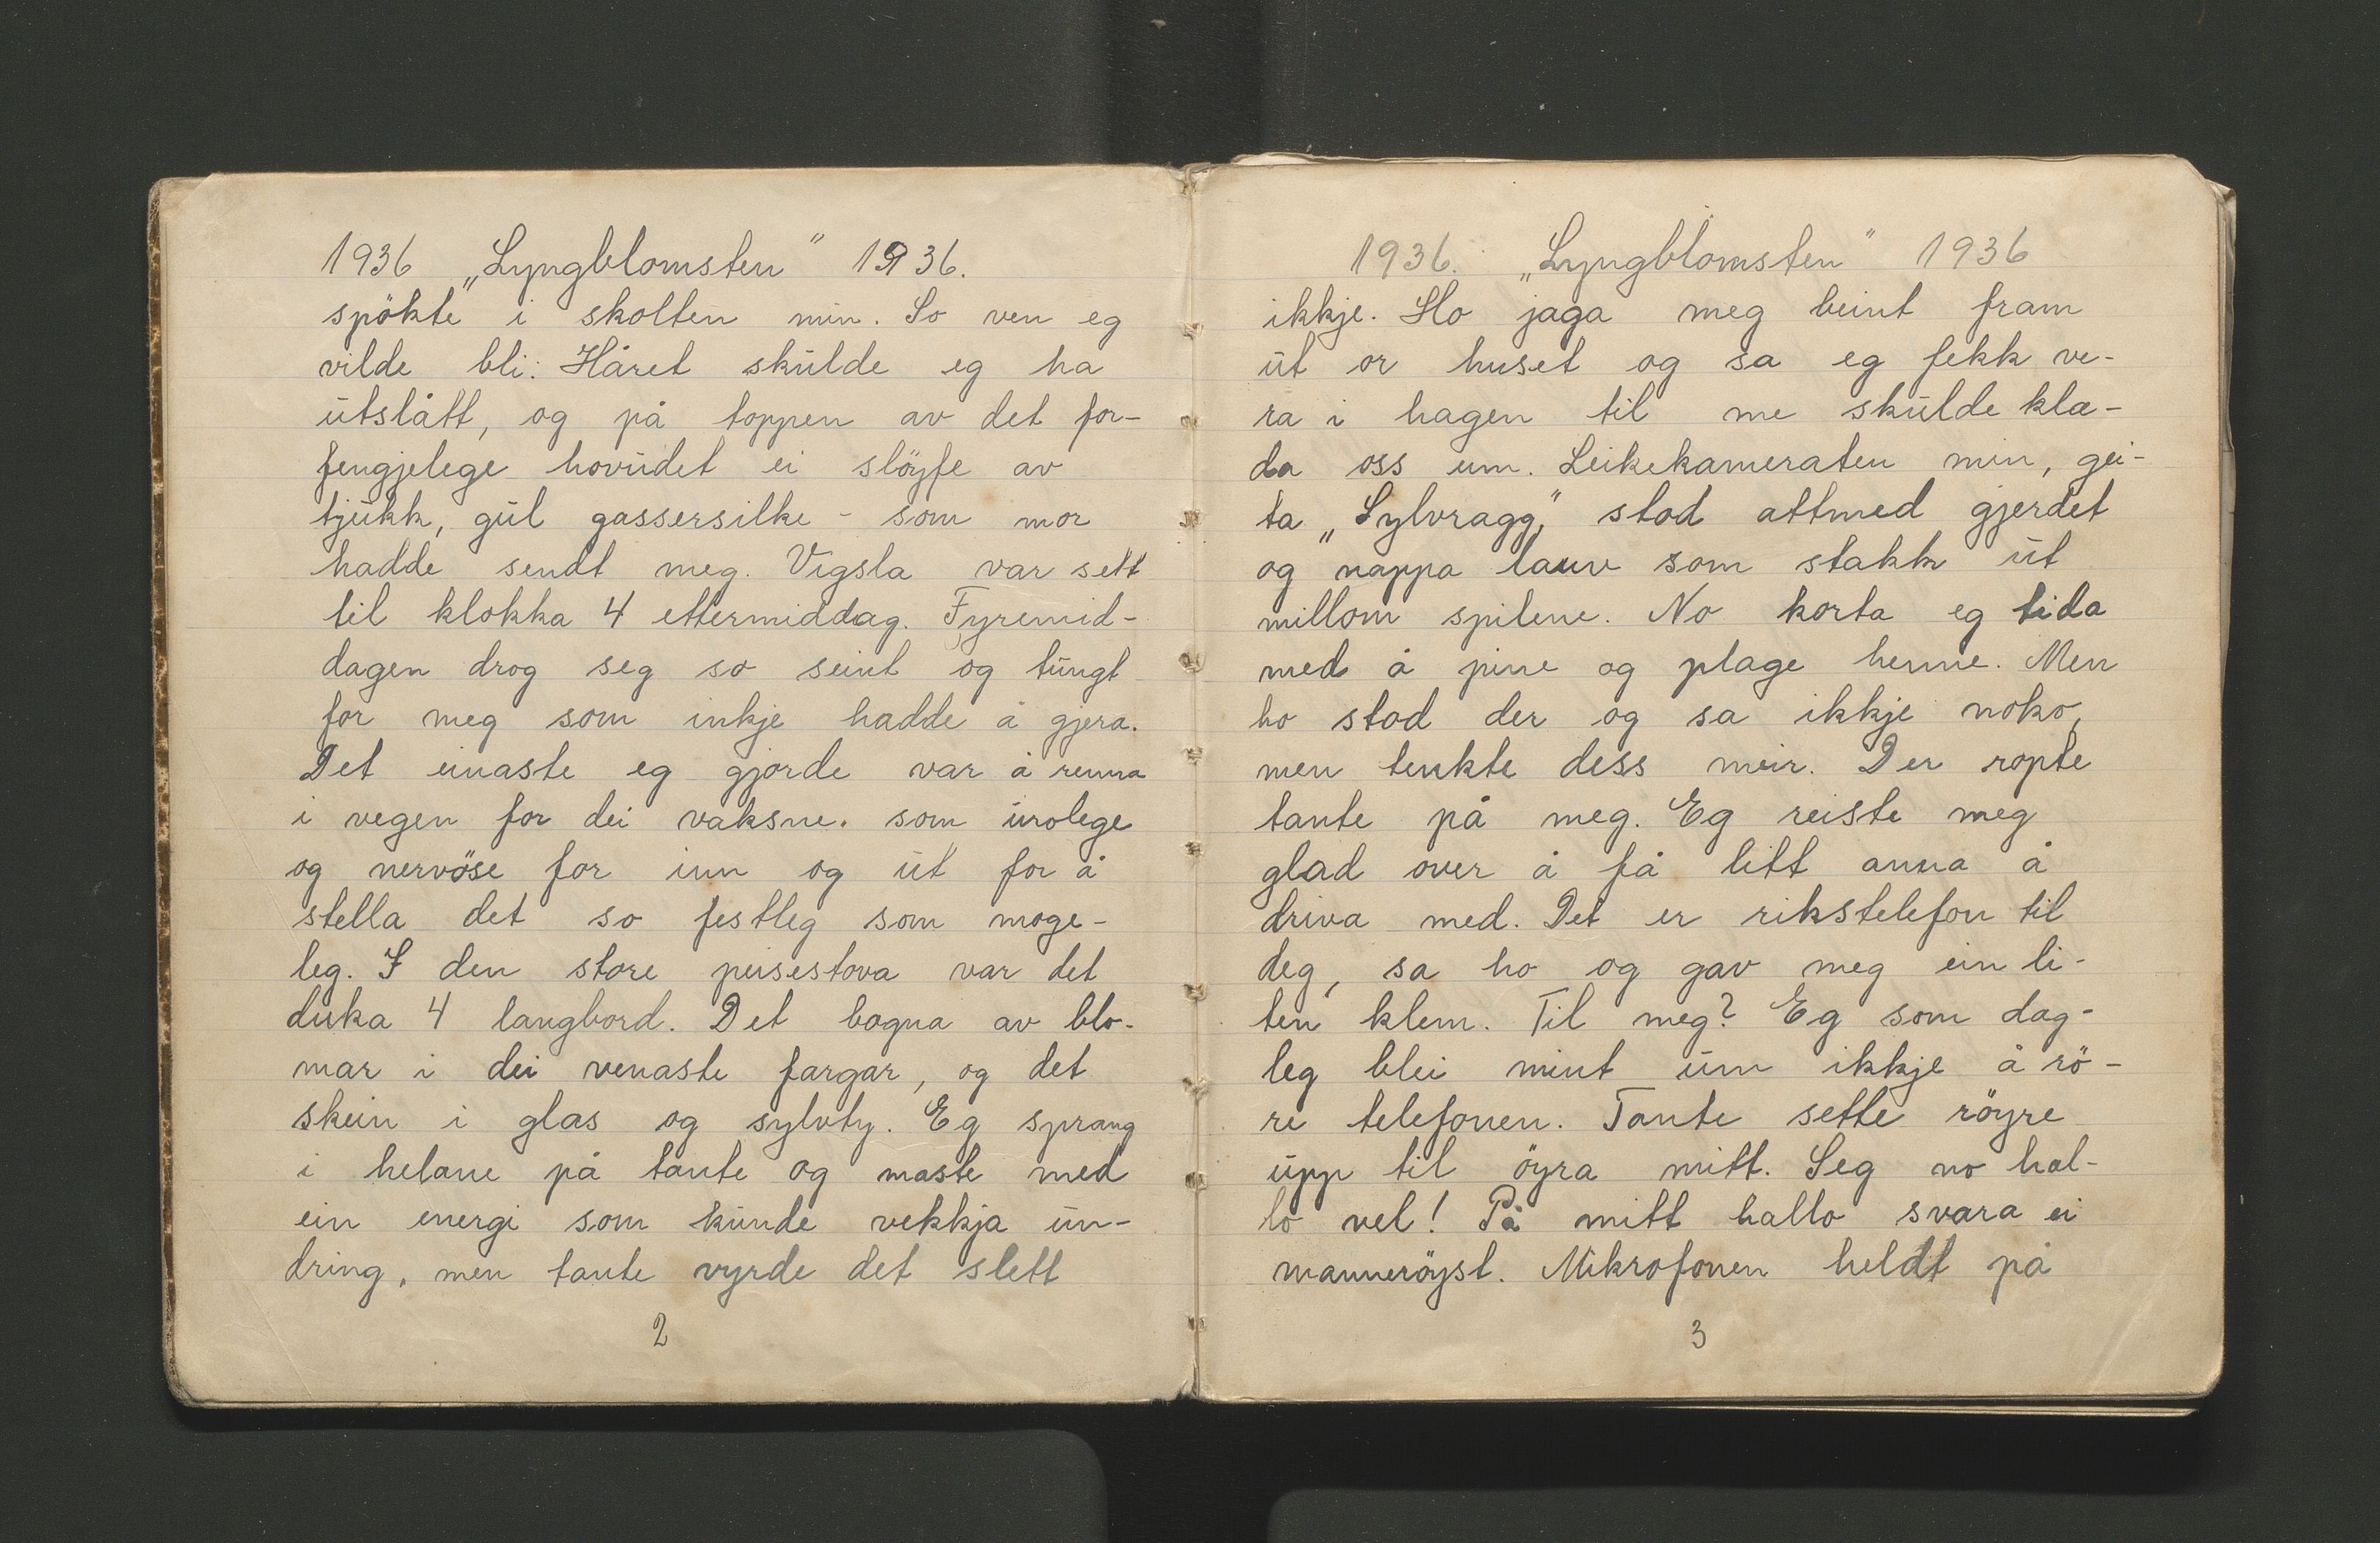 1936 „Lyngblomsten" 1936.
spökte i skolten min. So ven eg
vilde bli: Håret skulde eg ha
utslått, og på toppen av det for-
fengjelege hovudet ei slöyfe av
tjukk, gul gassersilke - som mor
hadde sendt meg. Vigsla var sett
til klokka 4 ettermiddag. Fyremid-
dagen drog seg so seint og tungt
for meg som inkje hadde å gjera.
Det einaste eg gjorde var å renna
i vegen for dei vaksne. som urolege
og nervöse for inn og ut for å
stella det so festleg som moge-
leg. I den store peisestova var det
duka 4 langbord. Det bogna av blo-
mar i dei venaste fargar, og det
skein i glas og sylvty. Eg sprang
i helane på tante og maste med
ein energi som kunde vekkja un-
dring, men tante vyrde det slett
2
1936. „Lyngblomsten" 1936
ikkje. Ho jaga meg beint fram
ut or huset og sa eg fekk ve-
ra i hagen til me skulde klæ-
da oss um. Leikekameraten min, gei-
ta „Sylvragg," stod attmed gjerdet
og nappa lauv som stakk ut
millom spilene. No korta eg tida
med å pine og plage henne. Men
ho stod der og sa ikkje noko,
men tenkte dess meir. Der ropte
tante på meg. Eg reiste meg
glad over å få litt anna å
driva med. Det er rikstelefon til
deg, sa ho og gav meg ein li-
ten klem. Til meg? Eg som dag-
leg blei mint um ikkje å rö-
re telefonen. Tante sette röyre
upp til öyra mitt. Seg no hal-
lo vel! På mitt hallo svara ei
manneröyst. Mikrofonen heldt på
3